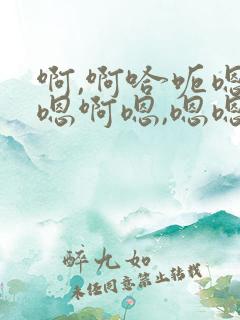 啊,啊哈呃嗯
嗯啊嗯,嗯嗯
醉九如
未经同意禁止转载